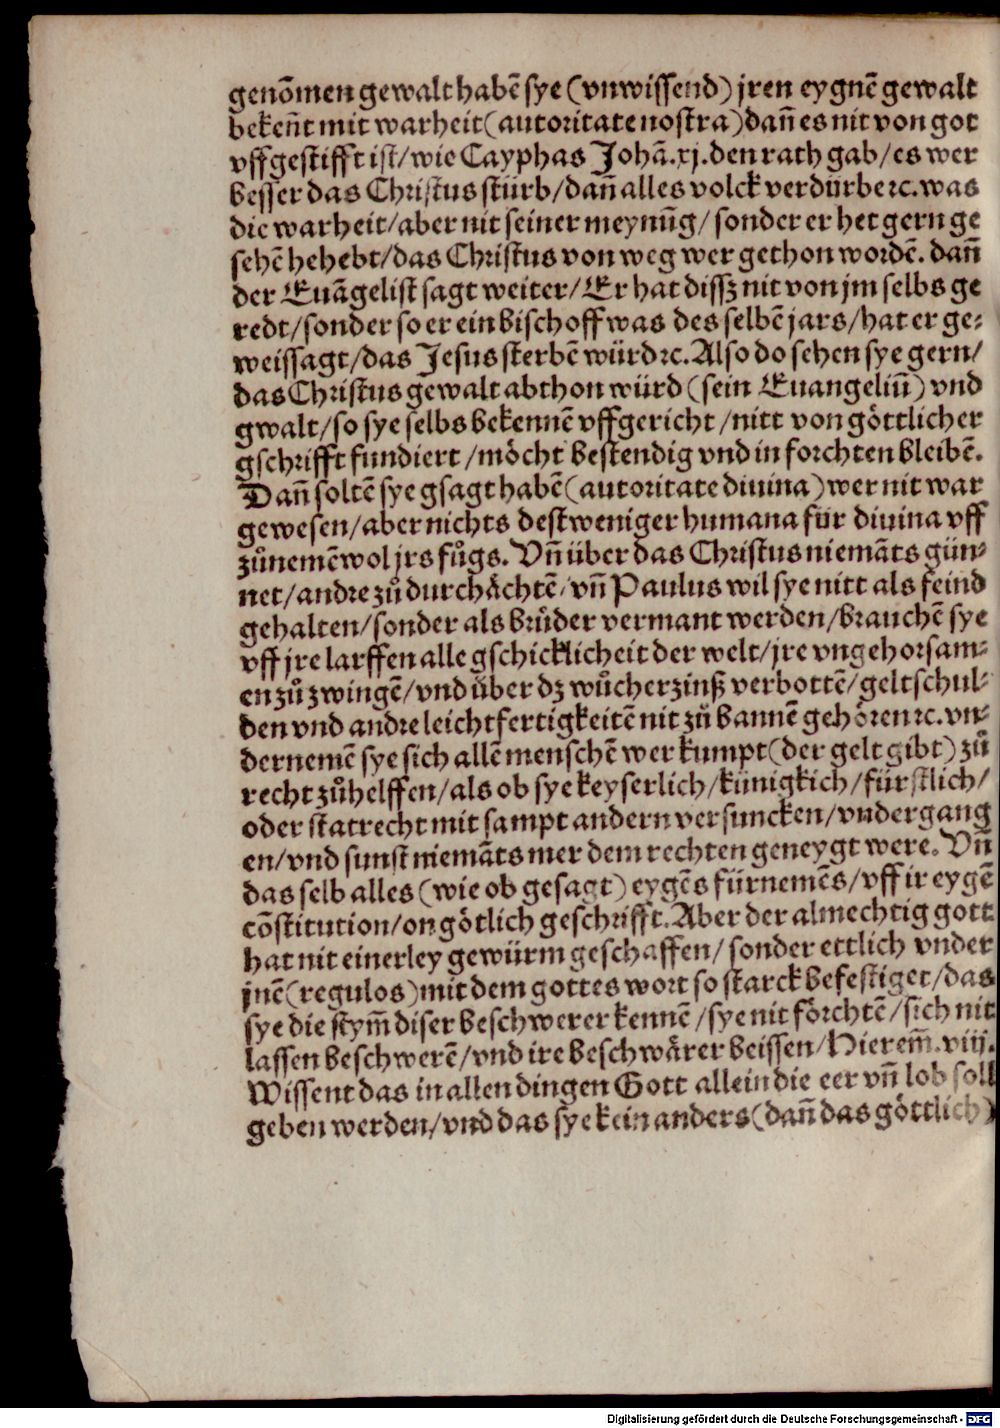 genōmen gewalt habē sye (vnwissend) jren eygnē gewalt
bekeñt mit warheit (autoritate nostra) dañ es nit von got
vffgestifft ist/ wie Cayphas Johā.xj. den rath gab/ es wer
besser das Christus stürb/ dañ alles volck verdürbe ⁊c. was
die warheit/ aber nit seiner meynūg/ sonder er het gern ge
sehē hehebt/ das Christus von weg wer gethon wordē. dañ
der Euāgelist sagt weiter/ Er hat dissz nit von jm selbs ge
redt/ sonder so er ein bischoff was des selbē jars/ hat er ge-
weissagt/ das Jesus sterbē würd ⁊c. Also do sehen sye gern/
das Christus gewalt abthon würd (sein Euangeliū) vnd
gwalt/ so sye selbs bekennē vffgericht/ nitt von göttlicher
gschrifft fundiert/ möcht bestendig vnd in forchten bleibē.
Dañ soltē sye gsagt habē (autoritate diuina) wer nit war
gewesen/ aber nichts destweniger humana für diuina vff
zůnemē wol jrs fůgs. Vñ über das Christus niemāts gün-
net/ andre zů durchächtē/ vñ Paulus wil sye nitt als feind
gehalten/ sonder als brůder vermant werden/ brauchē sye
vff jre larffen alle gschicklicheit der welt/ jre vngehorsam-
en zů zwingē/ vnd über dz wůcherzinß verbottē/ geltschul-
den vnd andre leichtfertigkeitē nit zů bannē gehören ⁊c. vn-
dernemē sye sich allē menschē wer kumpt (der gelt gibt) zů
recht zůhelffen/ als ob sye keyserlich/ künigkich/ fürstlich/
oder statrecht mit sampt andern versuncken/ vndergang
en/ vnd sunst niemāts mer dem rechten geneygt were. Vñ
das selb alles (wie ob gesagt) eygēs fürnemēs/ vff ir eygē
cōstitution/ on götlich geschrifft. Aber der almechtig gott
hat nit einerley gewürm geschaffen/ sonder ettlich vnder
jnē (regulos) mit dem gottes wort so starck befestiget/ das
sye die stym̄ diser beschwerer kennē/ sye nit förchtē/ sich nit
lassen beschwerē/ vnd ire beschwärer beissen/ Hierem̄.viij.
Wissent das in allen dingen Gott allein die eer vñ lob soll
geben werden/ vnd das sye kein anders (dañ das göttlich)
Digitalisierung gefördert durch die Deutsche Forschungsgemeinschaft - DFG